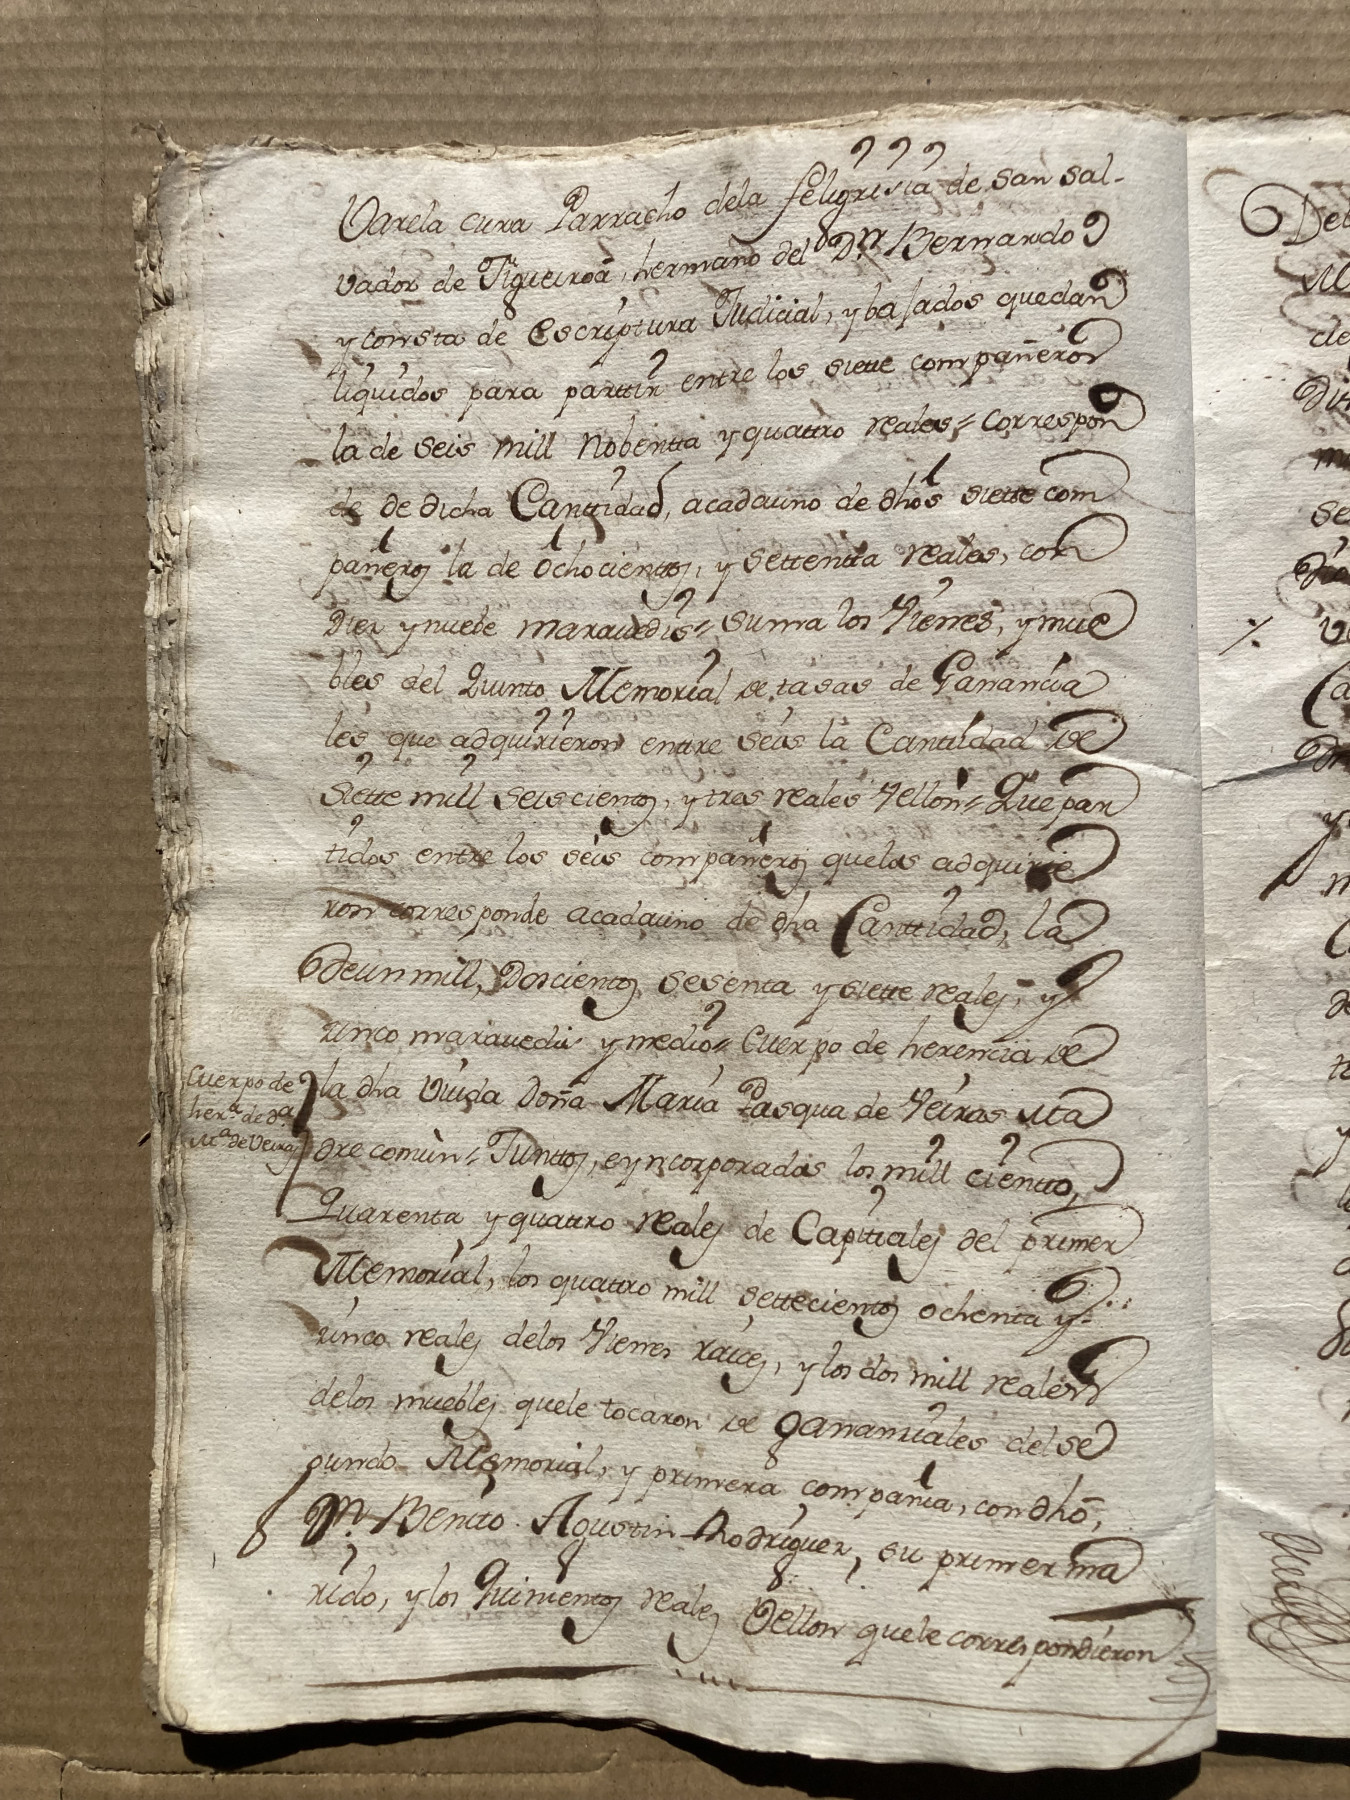 Varela cura Parracho dela feligrisia de san sal-
vador de Figueiroa, hermano del Dn Bernardo
y consta de Escriptura Judicial, y bajados quedan
liquidos para parttir entre los siette compañeros
la de seis mill nobentta y quattro reales= correspon
de de dicha Canttidad, acadauno de dhos siette com
pañeros la de ochocienttos, y settentta reales, con
Diez y nuebe maravedis= suma los Vienes, y mue
bles del Quinto Memorial de tasas de Ganancia
les que adquirieron entre seis la Canttidad de
Siette mill seiscientos, y tres reales Vellon= Que par
tidos entre los seis compañeros quelos adquirie
ron corresponde acadauno de dha Canttidad, la
deun mill, Doscientos sesenta y siette reales, y
cinco maravedis y medio= Cuerpo de herencia de
la dha Viuda Doña Maria Pasqua de Veiras Ma
dre comùn= Junttos, eyncorporados los mill cientto,
Quarenta y quattro reales de Capitales del primer
Memorial, los quattro mill settecientos ochenta y
cinco reales delos Vienes raices, y los dos mill reales
delos muebles quele tocaron de gananciales del se
gundo Memorial, y primera compañia, con dho,
Dn Benito Agustin Rodriguez, su primer ma
rido, y los Quinientos reales Vellon quele correspondieron
Cuerpo de
hera. de Da.
Ma. de Veiras